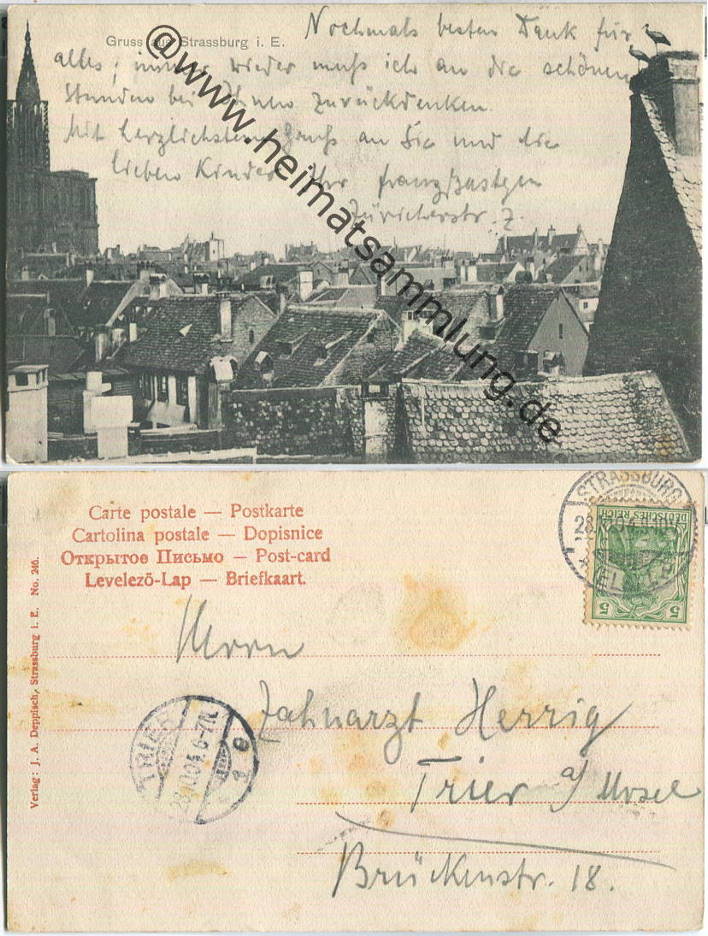 Gruss aus Strassburg i. E.
Nochmals besten Dank für
alles; immer wieder muß ich an die schönen
Stunden bei Ihnen zurückdenken.
Mit herzlichstem Gruß an Sie und die
lieben Kinder Ihr Franz
Züricherstr. 7.
@www.heimatsammlung.de
Carte postale — Postkarte
Cartolina postale — Dopisnice
Открытое Письмо — Post-card
Levelező-Lap — Briefkaart.
STRASSBURG
DEUTSCHES REICH
5 5
Verlag: J. A. Deppisch, Strassburg i. E. No. 246.
Herrn
Zahnarzt Herrig
Trier a/Mosel
Brückenstr. 18.
TRIER